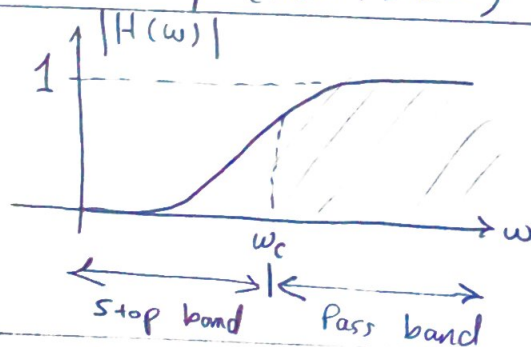 |H(ω)|
1
ω
ωc
Stop band
Pass band